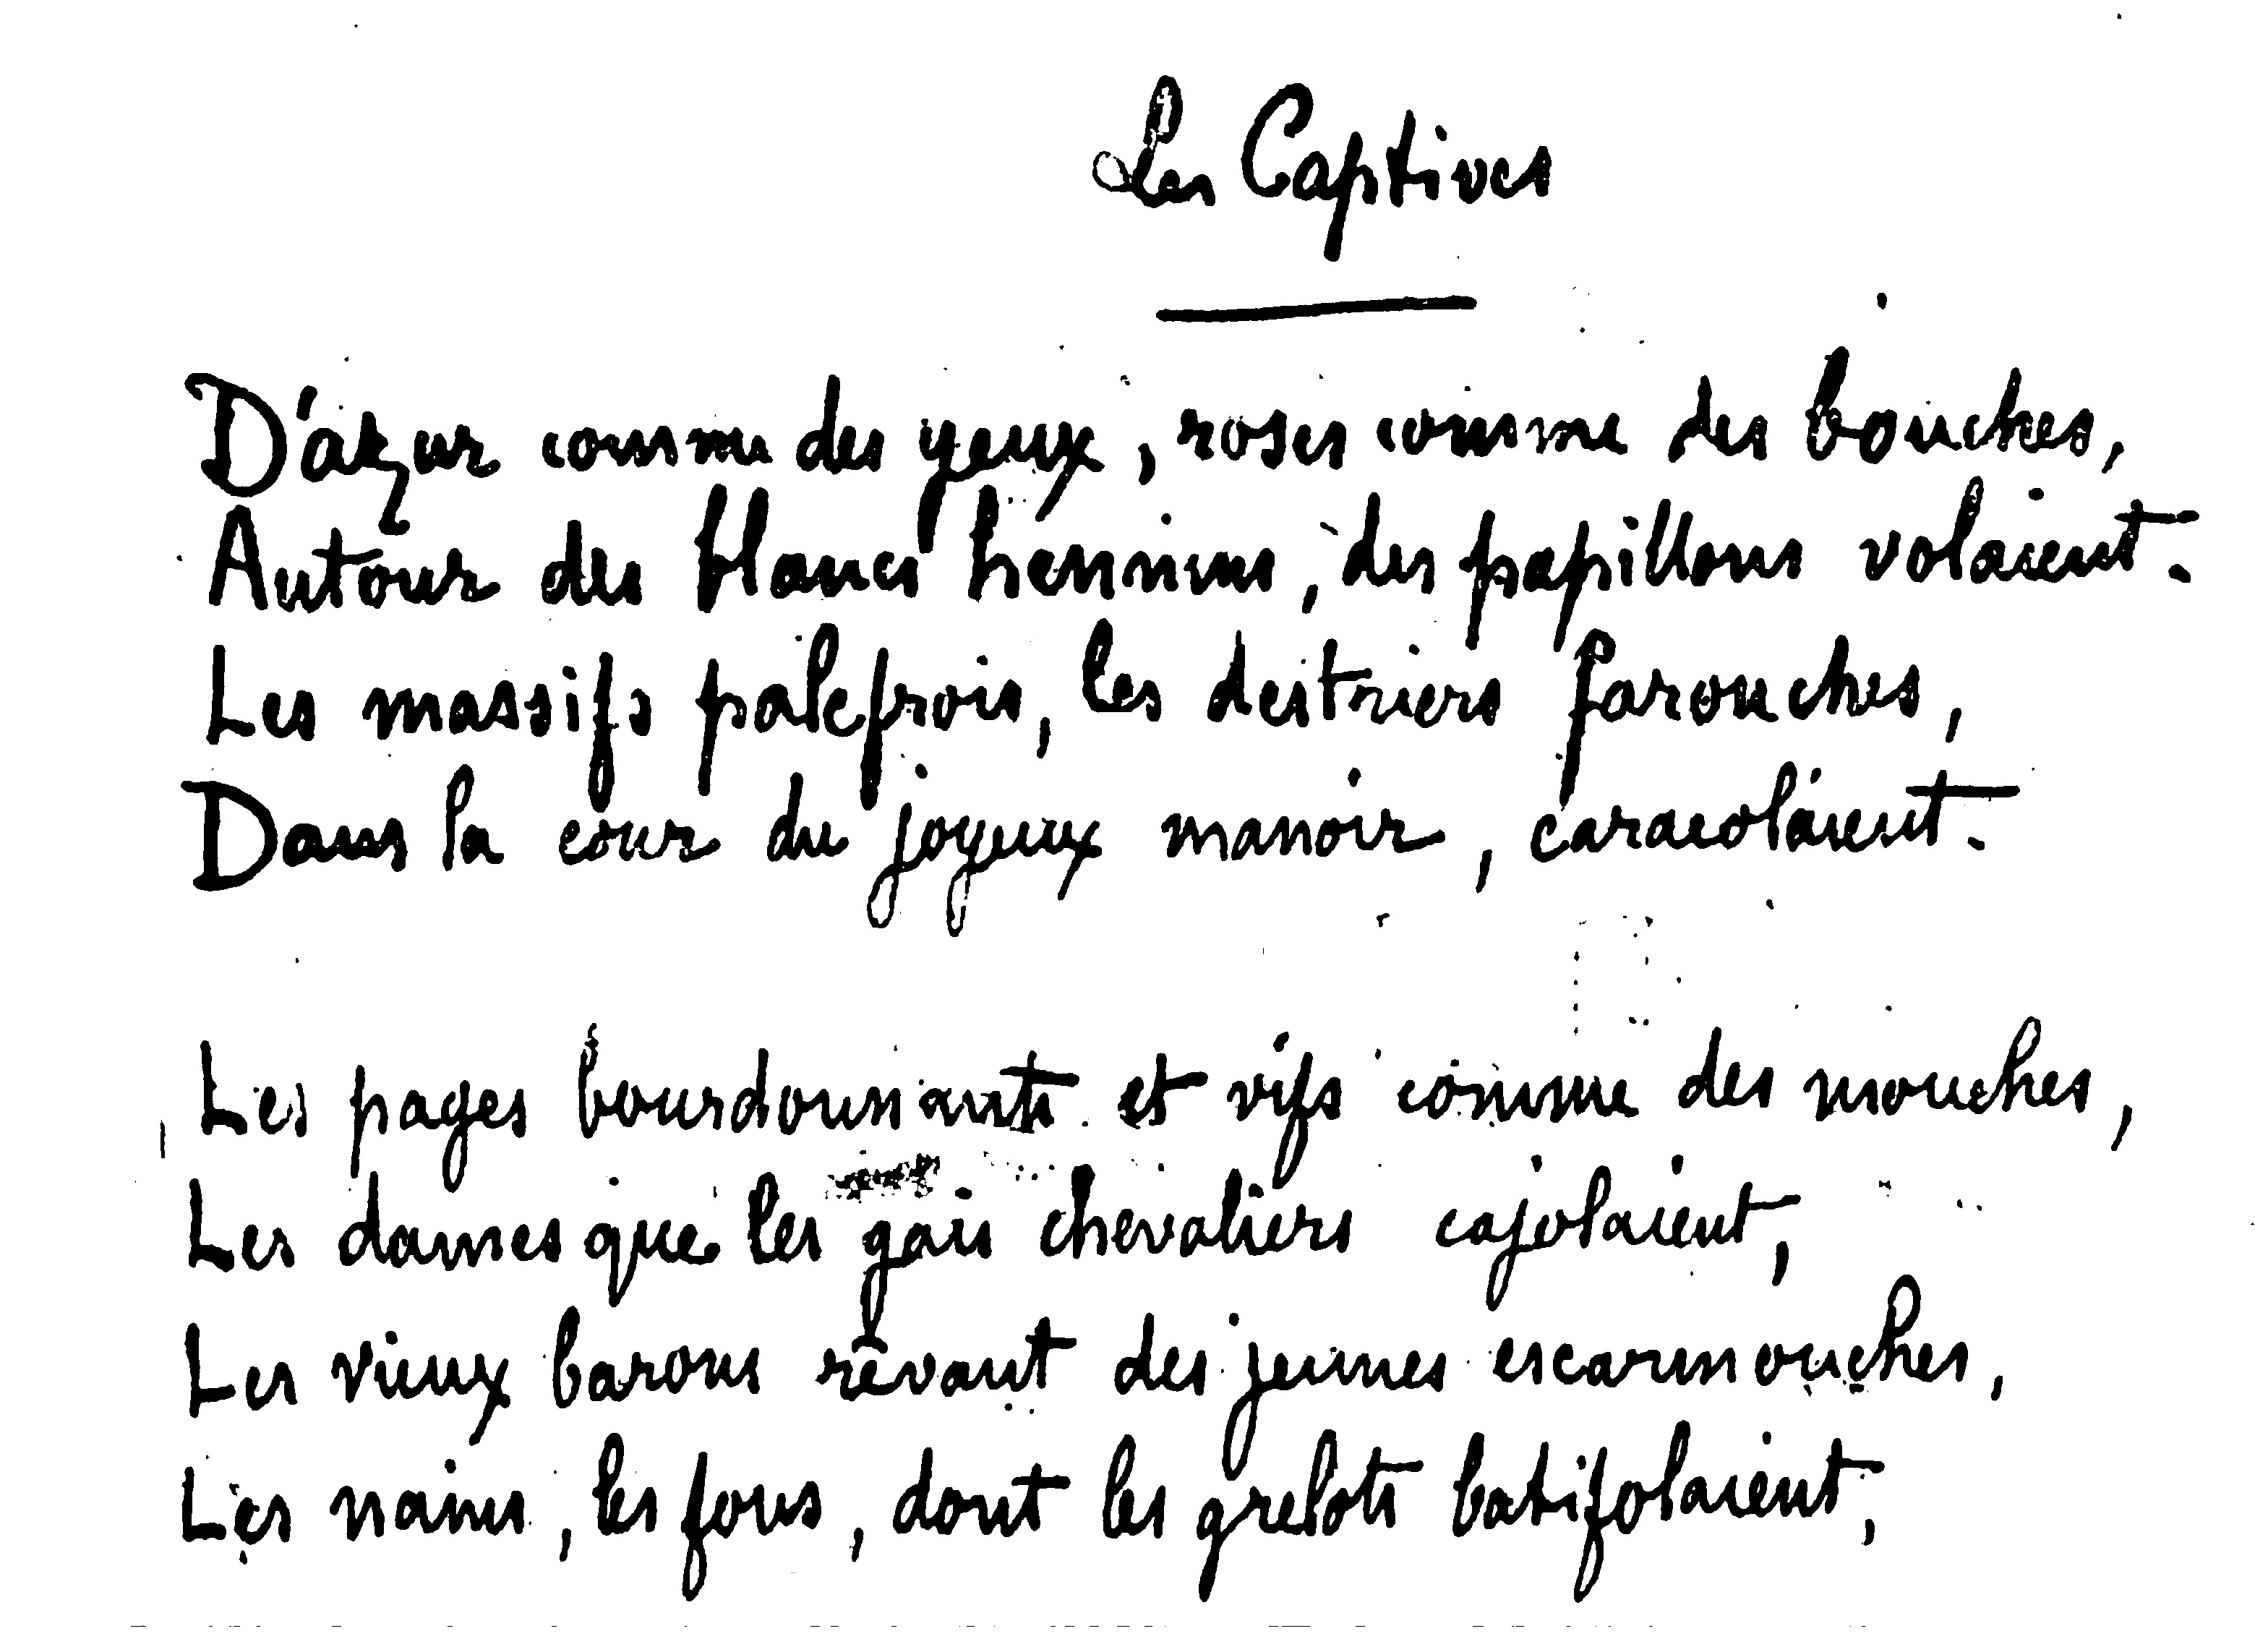 Les Captives
D'azur comme des yeux, roses comme des bouches,
Autour des blancs hennins, des papillons volaient.
Les massifs palefrois, les destriers farouches,
Dans la cour du joyeux manoir, caracolaient.
Les pages bourdonnants et vifs comme des mouches,
Les dames que les gais chevaliers cajolaient,
Les vieux barons rêvant des jeunes escarmouches,
Les nains, les fous, dont les grelots batifolaient,